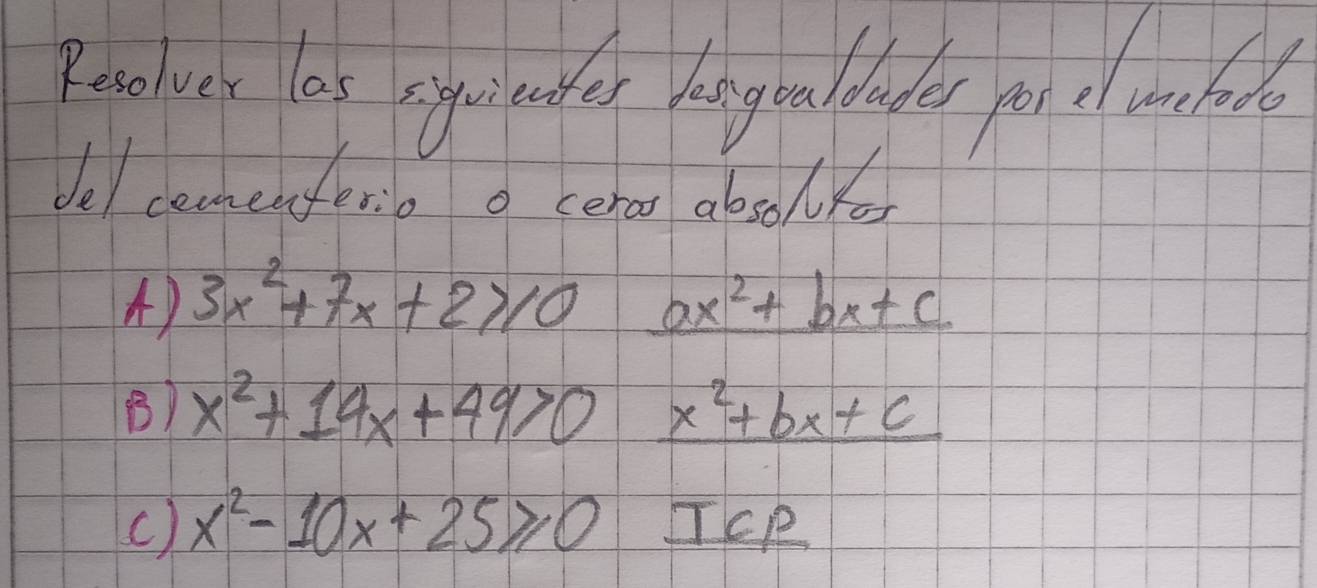 Resolver las siguientes desigualdades por el metodo
del cementerio o ceros absolutos
A) 3x²+7x+2≥0 ax²+bx+c
B) x²+14x+49>0 x²+bx+c
C) x²-10x+25≥0 TCP